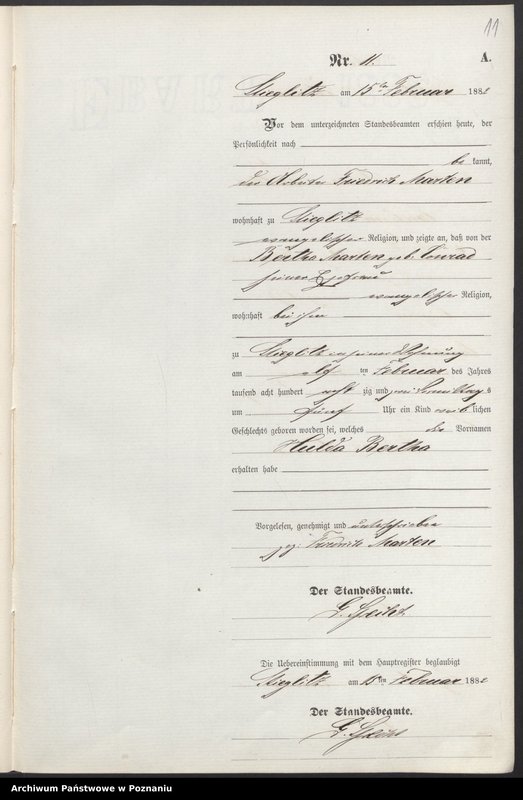 11
Nr. 11. A.
Stieglitz am 15ten Februar 1882
Vor dem unterzeichneten Standesbeamten erschien heute, der
Persönlichkeit nach
be kannt,
der Arbeiter Friedrich Marten
wohnhaft zu Stieglitz
evangelischer Religion, und zeigte an, daß von der
Bertha Marten geb. Conrad
seiner Ehefrau
evangelischer Religion,
wohnhaft bei ihm
zu Stieglitz in seiner Wohnung
am elf ten Februar des Jahres
tausend acht hundert acht zig und zwei Vormittags
um fünf Uhr ein Kind weib lichen
Geschlechts geboren worden sei, welches die Vornamen
Hulda Bertha
erhalten habe
Vorgelesen, genehmigt und unterschrieben
gez. Friedrich Marten
Der Standesbeamte.
Die Uebereinstimmung mit dem Hauptregister beglaubigt
Stieglitz am 15ten Februar 1882
Der Standesbeamte.
Archiwum Państwowe w Poznaniu